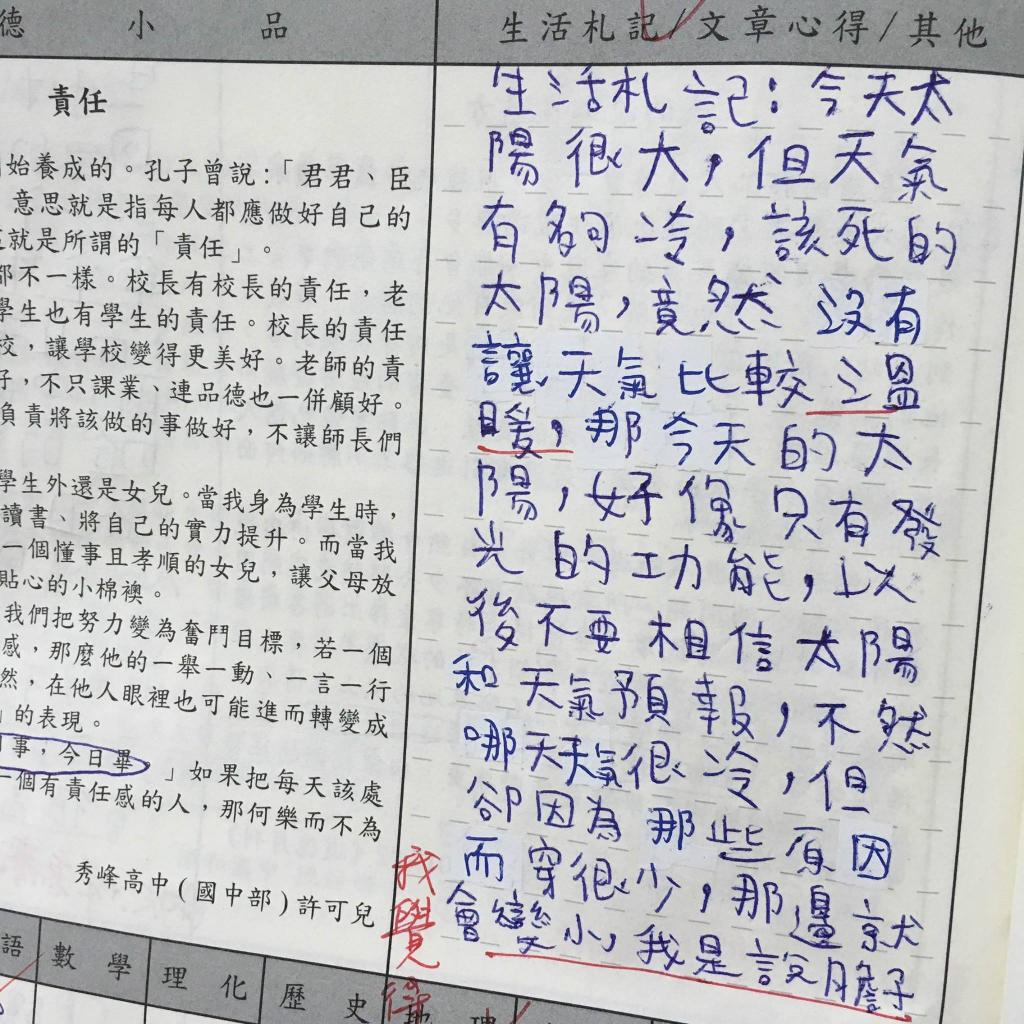 德 小 品
生活札記/文章心得/其他
責任
始養成的。孔子曾說:「君君、臣
意思就是指每人都應做好自己的
就是所謂的「責任」。
都不一樣。校長有校長的責任,老
學生也有學生的責任。校長的責任
校,讓學校變得更美好。老師的責
好,不只課業、連品德也一併顧好。
負責將該做的事做好,不讓師長們
學生外還是女兒。當我身為學生時,
讀書、將自己的實力提升。而當我
一個懂事且孝順的女兒,讓父母放
貼心的小棉襖。
我們把努力變為奮鬥目標,若一個
感,那麼他的一舉一動、一言一行
然,在他人眼裡也可能進而轉變成
」的表現。
事,今日畢 」如果把每天該處
一個有責任感的人,那何樂而不為
秀峰高中(國中部)許可兒
生活札記:今天太
陽很大,但天氣
有夠冷,該死的
太陽,竟然沒有
讓天氣比較溫
暖,那今天的太
陽,好像只有發
光的功能,以
後不要相信太陽
和天氣預報,不然
哪天天氣很冷,但
卻因為那些原因
而穿很少,那邊就
會變小,我是說膽子
我覺得
語 數學 理化 歷史 地理